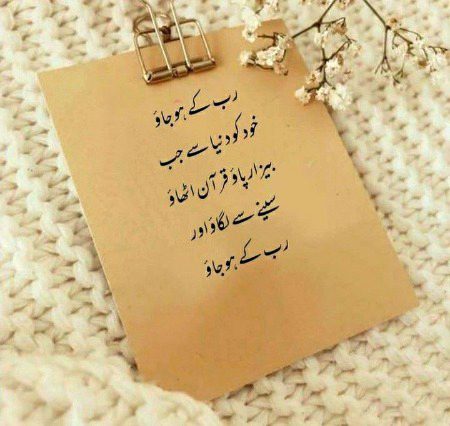 رب کے ہو جاؤ
خود کو دنیا سے جب
بیزار پاؤ قرآن اٹھاؤ
سینے سے لگاؤ اور
رب کے ہو جاؤ